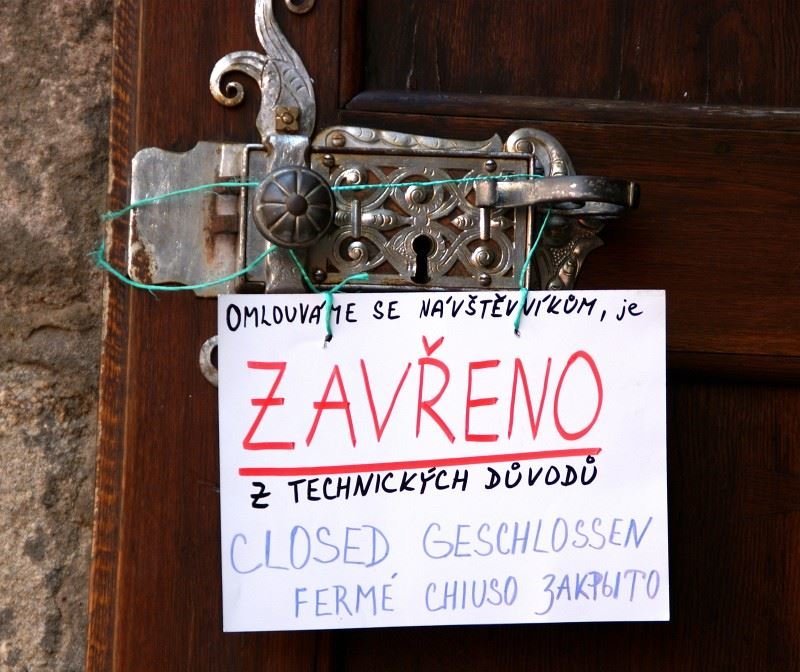 OMLOUVÁME SE NÁVŠTĚVNÍKŮM, je
ZAVŘENO
Z TECHNICKÝCH DŮVODŮ
CLOSED GESCHLOSSEN
FERMÉ CHIUSO ЗАКРЫТО